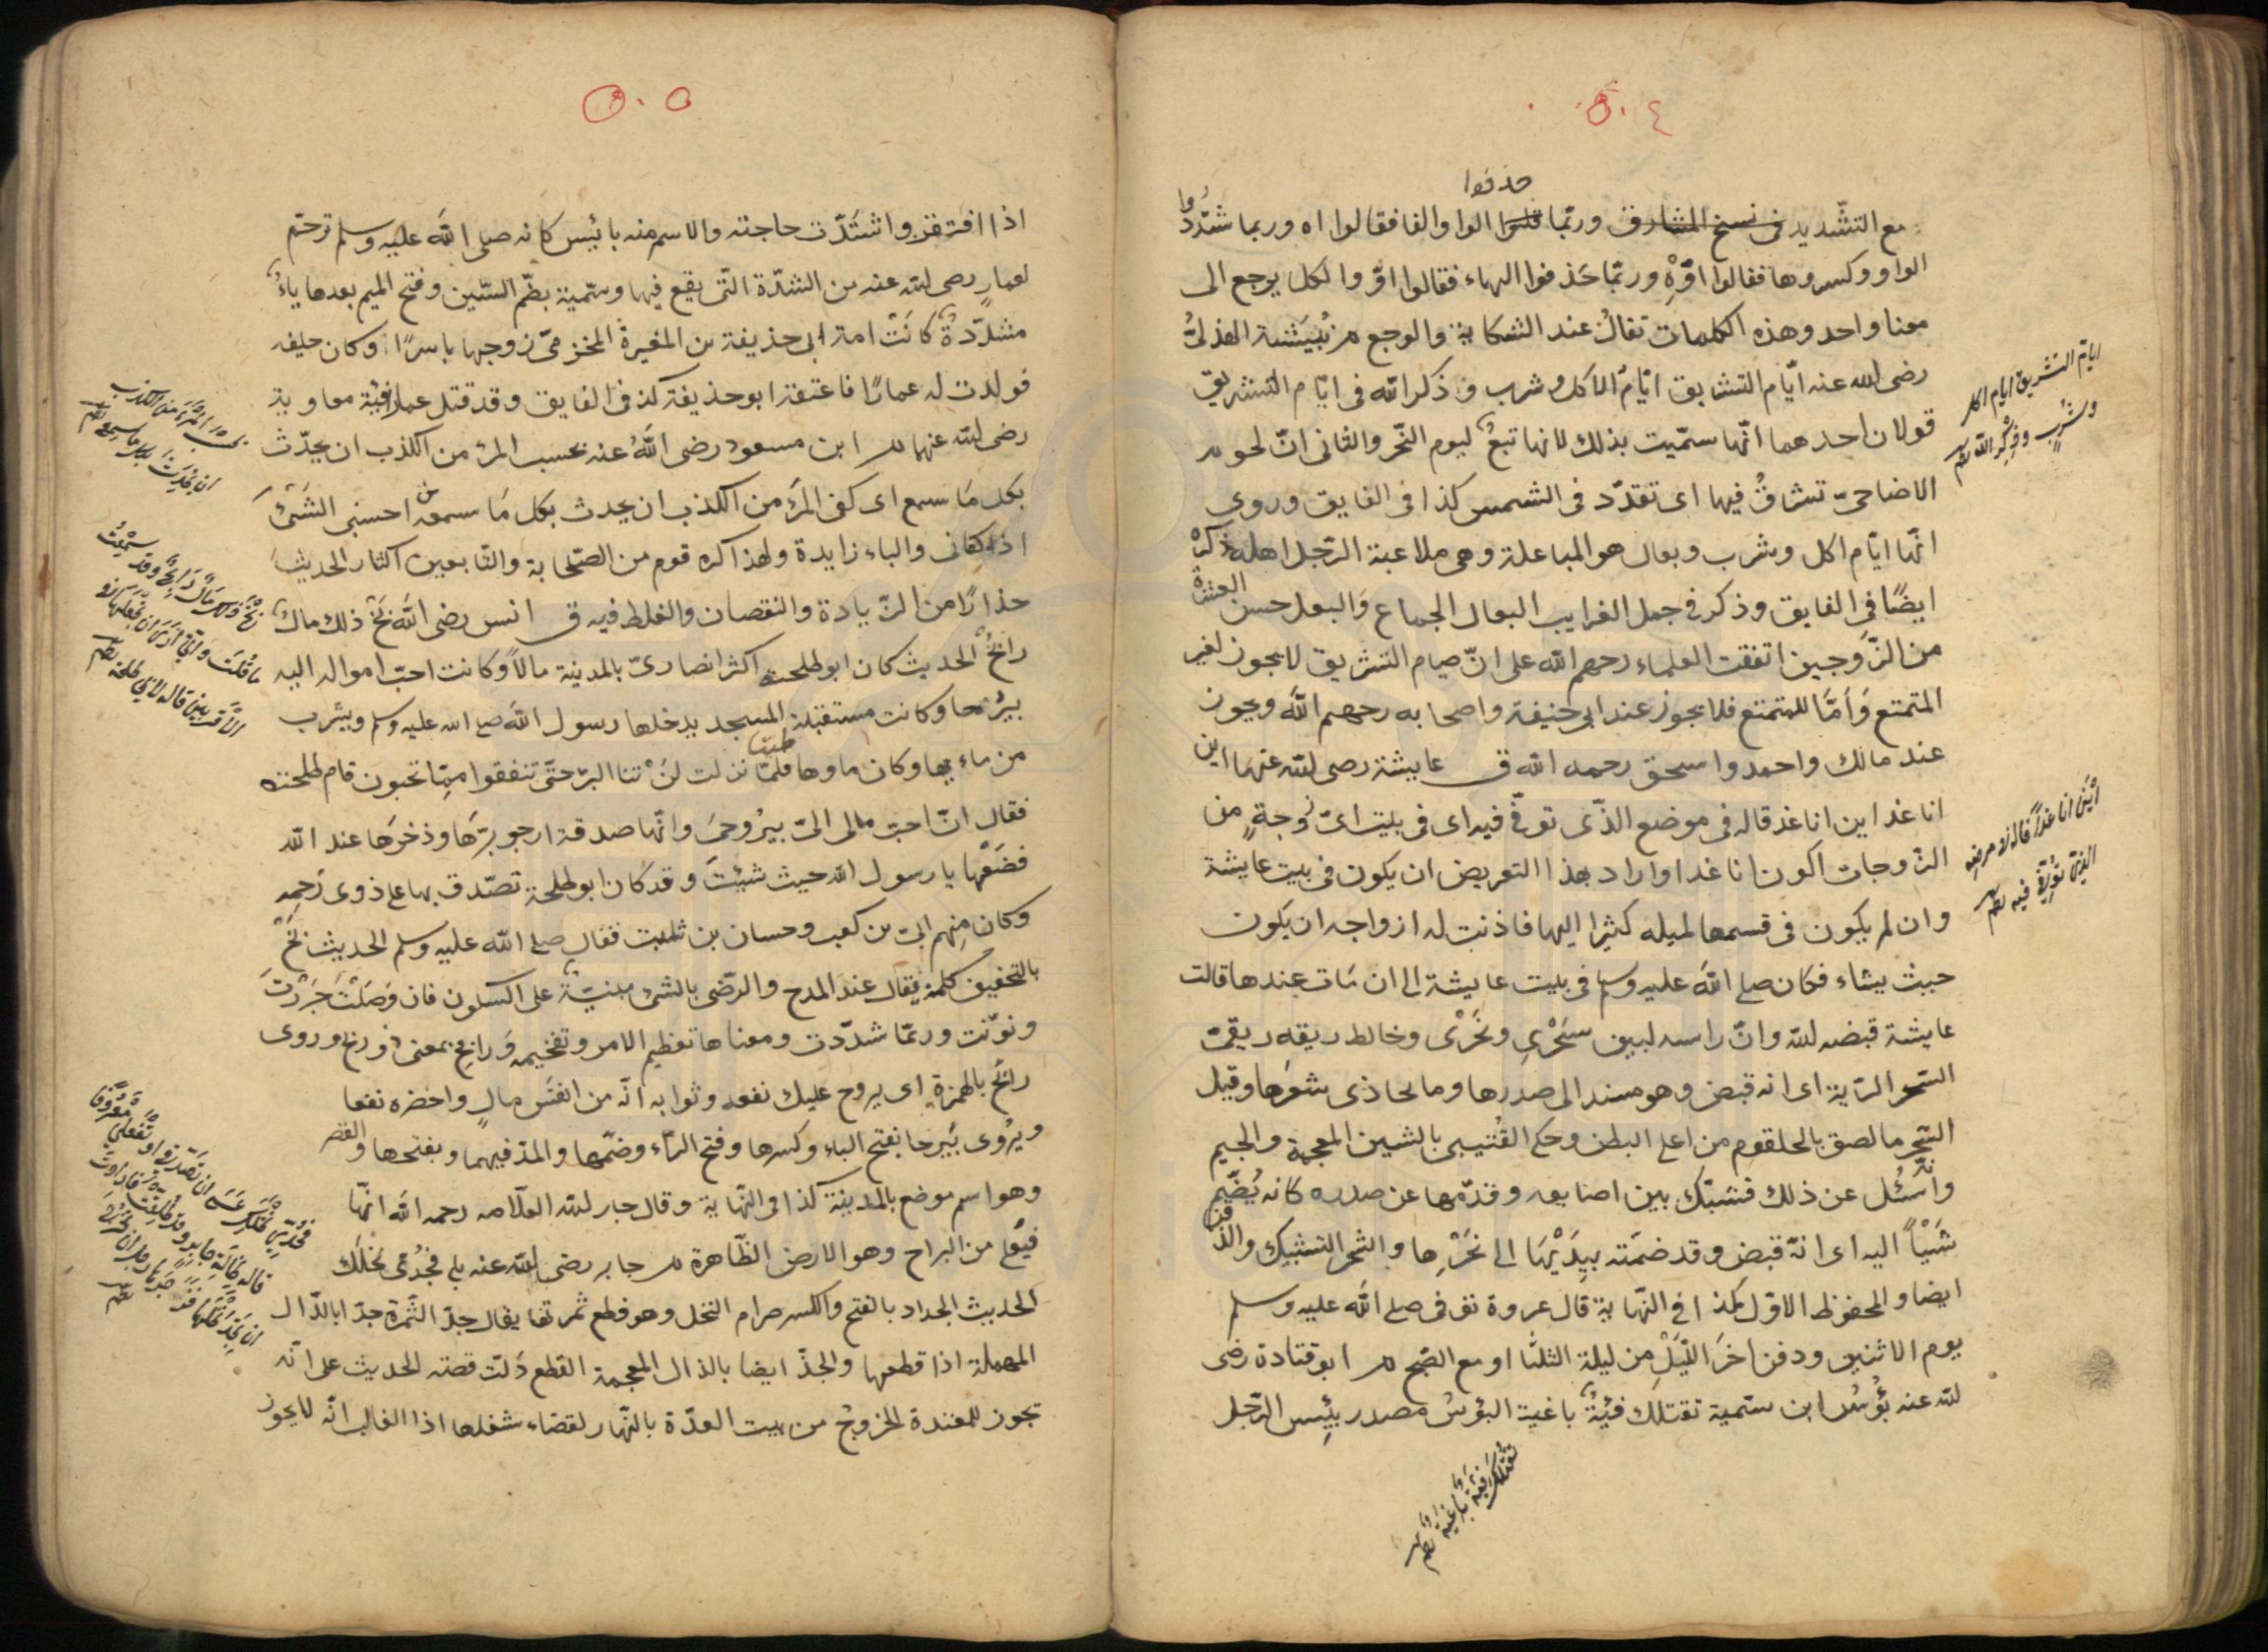 ٥٠٤
حذفوا
مع التشديد في نسخ المشارق وربما قلبوا الواو الفا فقالوا اه وربما شدّدوا
الواو وكسروها فقالوا اوّه وربما حذفوا الهاء فقالوا اوّ والكل يرجع الى
معنا واحد وهذه الكلمات تقال عند الشكاية والوجع م نبيشة الهذلى
رضى الله عنه ايّام التشريق ايّام الاكل وشرب وذكر الله فى ايّام التشريق
قولان احدهما انّها سمّيت بذلك لانها تبع ليوم النّحر والثانى انّ لحوم
الاضاحىّ تشرق فيها اى تقدّد فى الشمس كذا فى الفايق وروى
انّها ايّام اكل وشرب وبعال هو المباعلة وهى ملاعبة الرّجل اهله ذكره
ايضًا فى الفايق وذكر فى جمل الغرايب البعال الجماع والبعل حسن العشرة
من الزّوجين اتفقت العلماء رحمهم الله على انّ صيام التشريق لا يجوز لغير
المتمتع وامّا للمتمتع فلا يجوز عند ابى حنيفة واصحابه رحمهم الله ويجوز
عند مالك واحمد واسحق رحمه الله ق عايشة رضى الله عنها اين
انا غدا اين انا غد قاله فى موضع الذّى توفّى فيه اى فى بيت اىّ زوجة من
الزّوجات اكون انا غدا واراد بهذا التعريض ان يكون فى بيت عايشة
وان لم يكون فى قسمها لميله كثيرا اليها فاذنت له ازواجه ان يكون
حيث يشاء فكان صلى الله عليه وسلم فى بيت عايشة الى ان مات عندها قالت
عايشة قبضه الله وانّ راسه لبين سحرى ونحرى وخالط ريقه ريقى
السّحر الرّية اى انه قبض وهو مسند الى صدرها وما يحاذى سحرها وقيل
السّحر ما لصق بالحلقوم من اعلى البطن وحكى القتيبى بالشين المعجمة والجيم
وانّه سئل عن ذلك فشبّك بين اصابعه وقدّمها عن صدره كانه يضمّ
شيئًا اليه اى انّه قبض وقد ضمّته بيديها الى نحرها والشجر التشبيك والذقن
ايضا والمحفوظ الاوّل كذا فى النّهاية قال عروة توفى صلى الله عليه وسلم
يوم الاثنين ودفن اخر اللّيل من ليلة الثلثا او مع الصّبح م ابو قتادة رضى
الله عنه بؤس ابن سمّية تقتلك فئة باغية البؤس مصدر بيئس الرّجل
ايّام التشريق ايّام اكل
وشرب وذكر الله
اين انا غدًا قاله فى مرضه
الذى توفّى فيه
تقتلك فئة باغية
٥٠٥
اذا افتقر واشتدّت حاجته والاسم منه بائيس كانه صلى الله عليه وسلم ترحّم
لعمار رضى الله عنه من الشدّة الّتى يقع فيها وسمّية بضّم السّين وفتح الميم بعدها ياء
مشدّدة كانت امة ابى حذيفة بن المغيرة المخزومىّ زوجها ياسرًا وكان حليفه
فولدت له عمارًا فاعتقه ابو حذيفة كذ فى الفايق وقد قتل عمار فئة معاوية
رضى الله عنهما م ابن مسعود رضى الله عنه بحسب المرء من الكذب ان يحدّث
بكل ما سمع اى كفى المرء من الكذب ان يحدث بكل ما سمعه من احسبنى الشئ
اذا كفانى والباء زايدة ولهذا كره قوم من الصّحابة والتّابعين اكثار الحديث
حذارًا من الزّيادة والنقصان والغلط فيه ق انس رضى الله بخ ذلك مال
رابح الحديث كان ابو طلحة اكثر انصارىّ بالمدينة مالاً وكانت احبّ امواله اليه
بيرحا وكانت مستقبلة المسجد يدخلها رسول الله صلى الله عليه وسلم ويشرب
من ماء بها وكان ماوها طيّبا فلمّا نزلت لن تنالوا البرّ حتّى تنفقوا ممّا تحبون قام طلحة
فقال انّ احبّ مالى الىّ بيرحى وانّها صدقة ارجو برّها وذخرها عند الله
فضعها يا رسول الله حيث شيئت وقد كان ابو طلحة تصّدق بها على ذوى رحمه
وكان منهم ابىّ بن كعب وحسان بن ثابت فقال صلى الله عليه وسلم الحديث بخ
بالتخفيف كلمة يقال عند المدح والرّضى بالشئ مبنيّة على السكون فان وصلت جررت
ونوّنت وربّما شدّدت ومعناها تعظيم الامر وتفخيمه ورابح بمعنى ذو ربح وروى
رائح بالهمزة اى يروح عليك نفعه وثوابه انّه من انفس مال واحضره نفعا
ويروى بيرحا بفتح الباء وكسرها وفتح الرّاء وضمّها والمدّ فيهما وبفتحها والقصر
وهو اسم موضع بالمدينة كذا فى النّهاية وقال جار الله العلّامه رحمه الله انّها
فيعلى من البراح وهو الارض الظّاهرة م جابر رضى الله عنه بلى فجُدّى نخلك
الحديث الجداد بالفتح والكسر صرام النخل وهو قطع ثمرتها يقال جدّ الثّمرة جدّا بالدّال
المهملة اذا قطعها والجذّ ايضا بالذال المعجمة القطع دلّت قصّته الحديث على انّه
تجوز للمعتدة الخروج من بيت العدّة بالنّهار لقضاء شغلها اذا الغالب انّه لا يجوز
بحسب المرء من الكذب
ان يحدّث بكل ما سمع
بخ ذلك مال رابح وقد سمعت
ما قلت وانّى ارى ان تجعلها فى
الاقربين قاله لابى طلحة